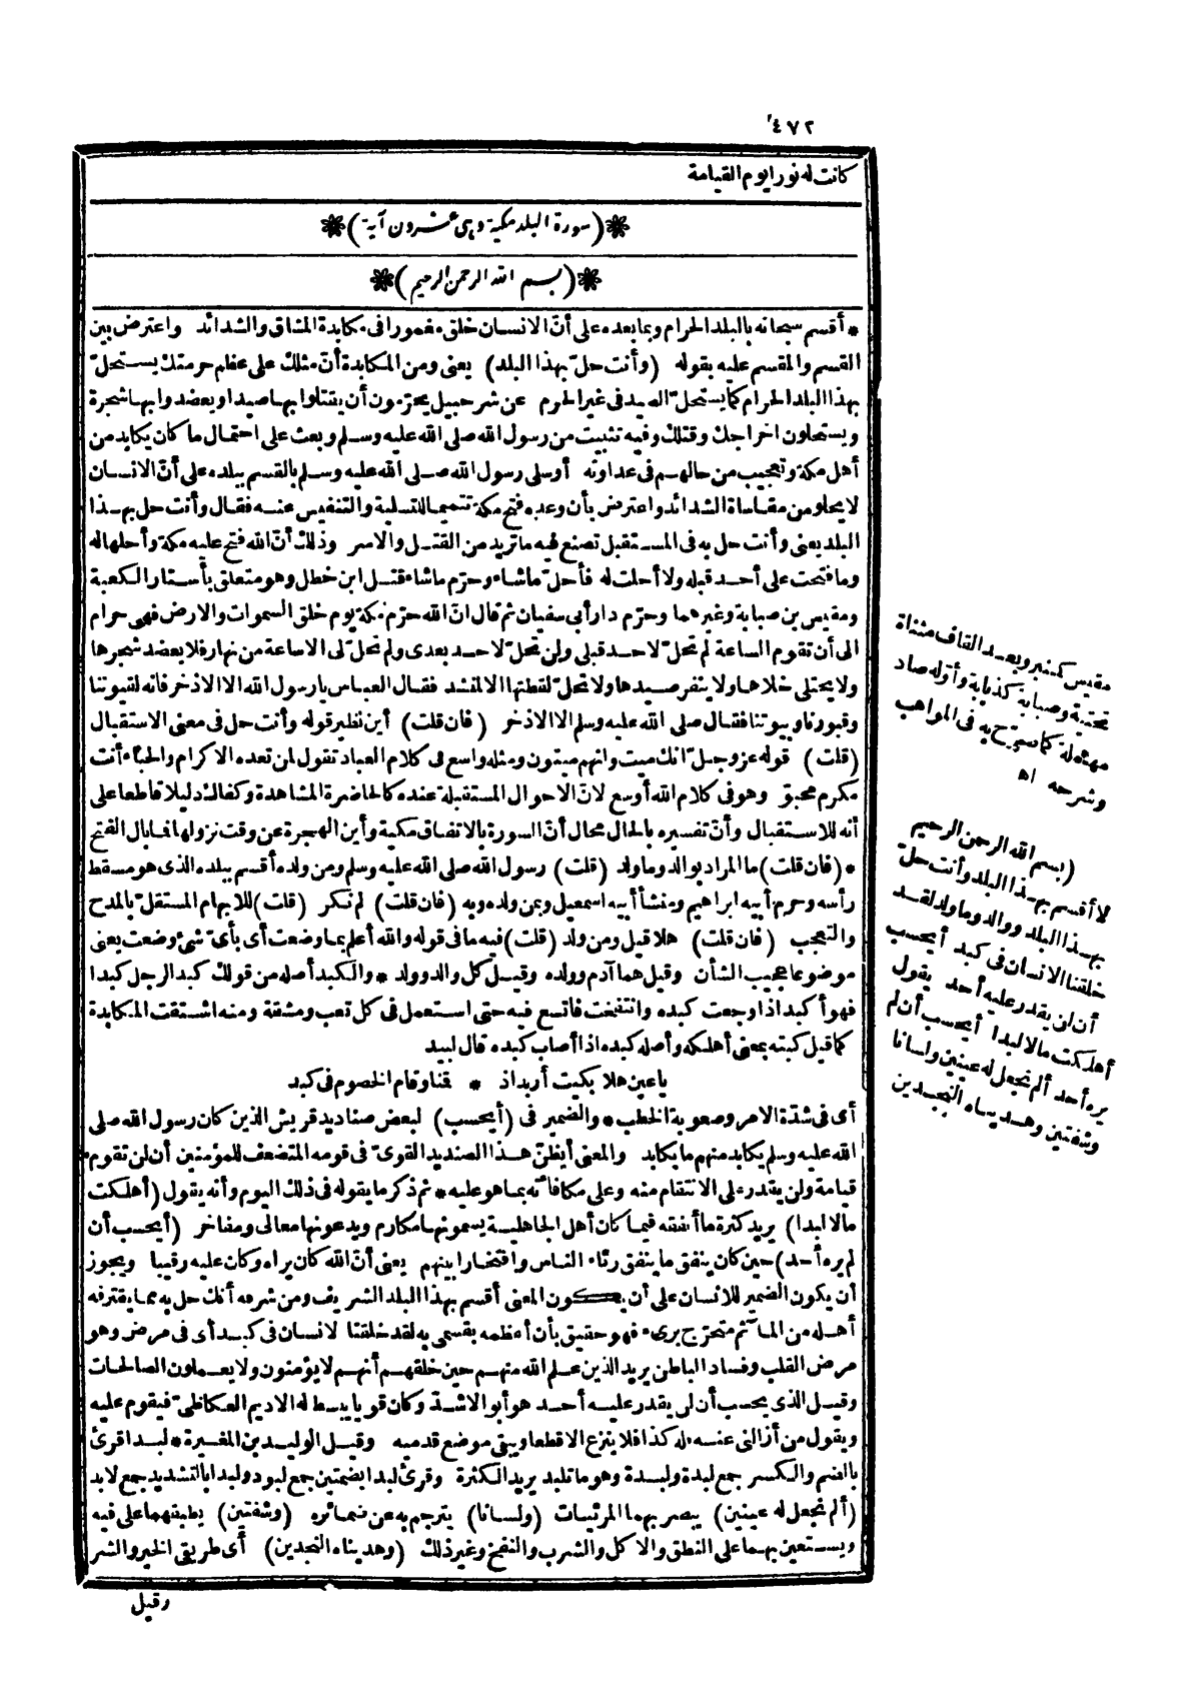 ٤٧٢
كانت له نورا يوم القيامة
(سورة البلد مكية وهى عشرون آية)
(بسم الله الرحمن الرحيم)
* أقسم سبحانه بالبلد الحرام وبما بعده على أنّ الانسان خلق مغمورا فى مكابدة المشاق والشدائد واعترض بين
القسم والمقسم عليه بقوله (وأنت حلّ بهذا البلد) يعنى ومن المكابدة أنّ مثلك على عظم حرمتك يستحلّ
بهذا البلد الحرام كما يستحلّ الصيد فى غير الحرم عن شرحبيل يحرّمون أن يقتلوا بها صيدا ويعضدوا بها شجرة
ويستحلون اخراجك وقتلك وفيه تثبيت من رسول الله صلى الله عليه وسلم وبعث على احتمال ما كان يكابد من
أهل مكة وتعجيب من حالهم فى عداوته أوسلى رسول الله صلى الله عليه وسلم بالقسم ببلده على أنّ الانسان
لا يخلو من مقاساة الشدائد واعترض بأن وعده فتح مكة تتميما للتسلية والتنفيس عنه فقال وأنت حل بهذا
البلد يعنى وأنت حل به فى المستقبل تصنع فيه ما تريد من القتل والاسر وذلك أنّ الله فتح عليه مكة وأحلها له
وما فتحت على أحد قبله ولا أحلت له فأحلّ ما شاء وحرّم ما شاء قتل ابن خطل وهو متعلق بأستار الكعبة
ومقيس بن صبابة وغيرهما وحرّم دار أبى سفيان ثم قال انّ الله حرّم مكة يوم خلق السموات والارض فهى حرام
الى أن تقوم الساعة لم تحلّ لاحد قبلى ولن تحلّ لاحد بعدى ولم تحلّ لى الا ساعة من نهار فلا يعضد شجرها
ولا يختلى خلاها ولا ينفر صيدها ولا تحلّ لقطتها الا لمنشد فقال العباس يا رسول الله الا الاذخر فانه لقيوننا
وقبورنا وبيوتنا فقال صلى الله عليه وسلم الا الاذخر (فان قلت) أين نظير قوله وأنت حل فى معنى الاستقبال
(قلت) قوله عز وجلّ انك ميت وانهم ميتون ومثله واسع فى كلام العباد تقول لمن تعده الاكرام والحباء أنت
مكرم محبوّ وهو فى كلام الله أوسع لانّ الاحوال المستقبلة عنده كالحاضرة المشاهدة وكفاك دليلا قاطعا على
أنه للاستقبال وأنّ تفسيره بالحال محال أنّ السورة بالاتفاق مكية وأين الهجرة عن وقت نزولها فما بال الفتح
* (فان قلت) ما المراد بوالد وما ولد (قلت) رسول الله صلى الله عليه وسلم ومن ولده أقسم ببلده الذى هو مسقط
رأسه وحرم أبيه ابراهيم ومنشأ أبيه اسمعيل وبمن ولده وبه (فان قلت) لم نكر (قلت) للابهام المستقلّ بالمدح
والتعجب (فان قلت) هلا قيل ومن ولد (قلت) فيه ما فى قوله والله أعلم بما وضعت أى بأىّ شئ وضعت يعنى
موضوعا عجيب الشأن وقيل هما آدم وولده وقيل كل والد وولد * والكبد أصله من قولك كبد الرجل كبدا
فهو أكبد اذا وجعت كبده وانتفخت فاتسع فيه حتى استعمل فى كل تعب ومشقة ومنه اشتقت المكابدة
كما قيل كبته بمعنى أهلكه وأصله كبده اذا أصاب كبده قال لبيد
يا عين هلا بكيت أربد اذ * قمنا وقام الخصوم فى كبد
أى فى شدّة الامر وصعوبة الخطب * والضمير فى (أيحسب) لبعض صناديد قريش الذين كان رسول الله صلى
الله عليه وسلم يكابد منهم ما يكابد والمعنى أيظنّ هذا الصنديد القوىّ فى قومه المتضعف للمؤمنين أن لن تقوم
قيامة ولن يقدر على الانتقام منه وعلى مكافأته بما هو عليه * ثم ذكر ما يقوله فى ذلك اليوم وأنه يقول (أهلكت
مالا لبدا) يريد كثرة ما أنفقه فيما كان أهل الجاهلية يسمونها مكارم ويدعونها معالى ومفاخر (أيحسب أن
لم يره أحد) حين كان ينفق ما ينفق رئاء الناس وافتخارا بينهم يعنى أنّ الله كان يراه وكان عليه رقيبا ويجوز
أن يكون الضمير للانسان على أن يكون المعنى أقسم بهذا البلد الشريف ومن شرفه أنك حل به مما يقترفه
أهله من المآثم متحرّج برىء فهو حقيق بأن أعظمه بقسمى به لقد خلقنا الانسان فى كبد أى فى مرض وهو
مرض القلب وفساد الباطن يريد الذين علم الله منهم حين خلقهم أنهم لا يؤمنون ولا يعملون الصالحات
وقيل الذى يحسب أن لن يقدر عليه أحد هو أبو الاشدّ وكان قويا يبسط له الاديم العكاظىّ فيقوم عليه
ويقول من أزالنى عنه فله كذا فلا ينزع الا قطعا ويبقى موضع قدميه وقيل الوليد بن المغيرة * لبدا قرئ
بالضم والكسر جمع لبدة ولبدة وهو ما تلبد يريد الكثرة وقرئ لبدا بضمتين جمع لبود ولبدا بالتشديد جمع لابد
(ألم نجعل له عينين) يبصر بهما المرئيات (ولسانا) يترجم به عن ضمائره (وشفتين) يطبقهما على فيه
ويستعين بهما على النطق والاكل والشرب والنفخ وغير ذلك (وهديناه النجدين) أى طريقى الخير والشر
وقيل
مقيس كمنبر وبعد القاف مثناة
تحتية وصبابة كذبابة وأوّله صاد
مهملة كما صرّح به فى المواهب
وشرحه اه
(بسم الله الرحمن الرحيم
لا أقسم بهذا البلد وأنت حلّ
بهذا البلد ووالد وما ولد لقد
خلقنا الانسان فى كبد أيحسب
أن لن يقدر عليه أحد يقول
أهلكت مالا لبدا أيحسب أن لم
يره أحد ألم نجعل له عينين ولسانا
وشفتين وهديناه النجدين